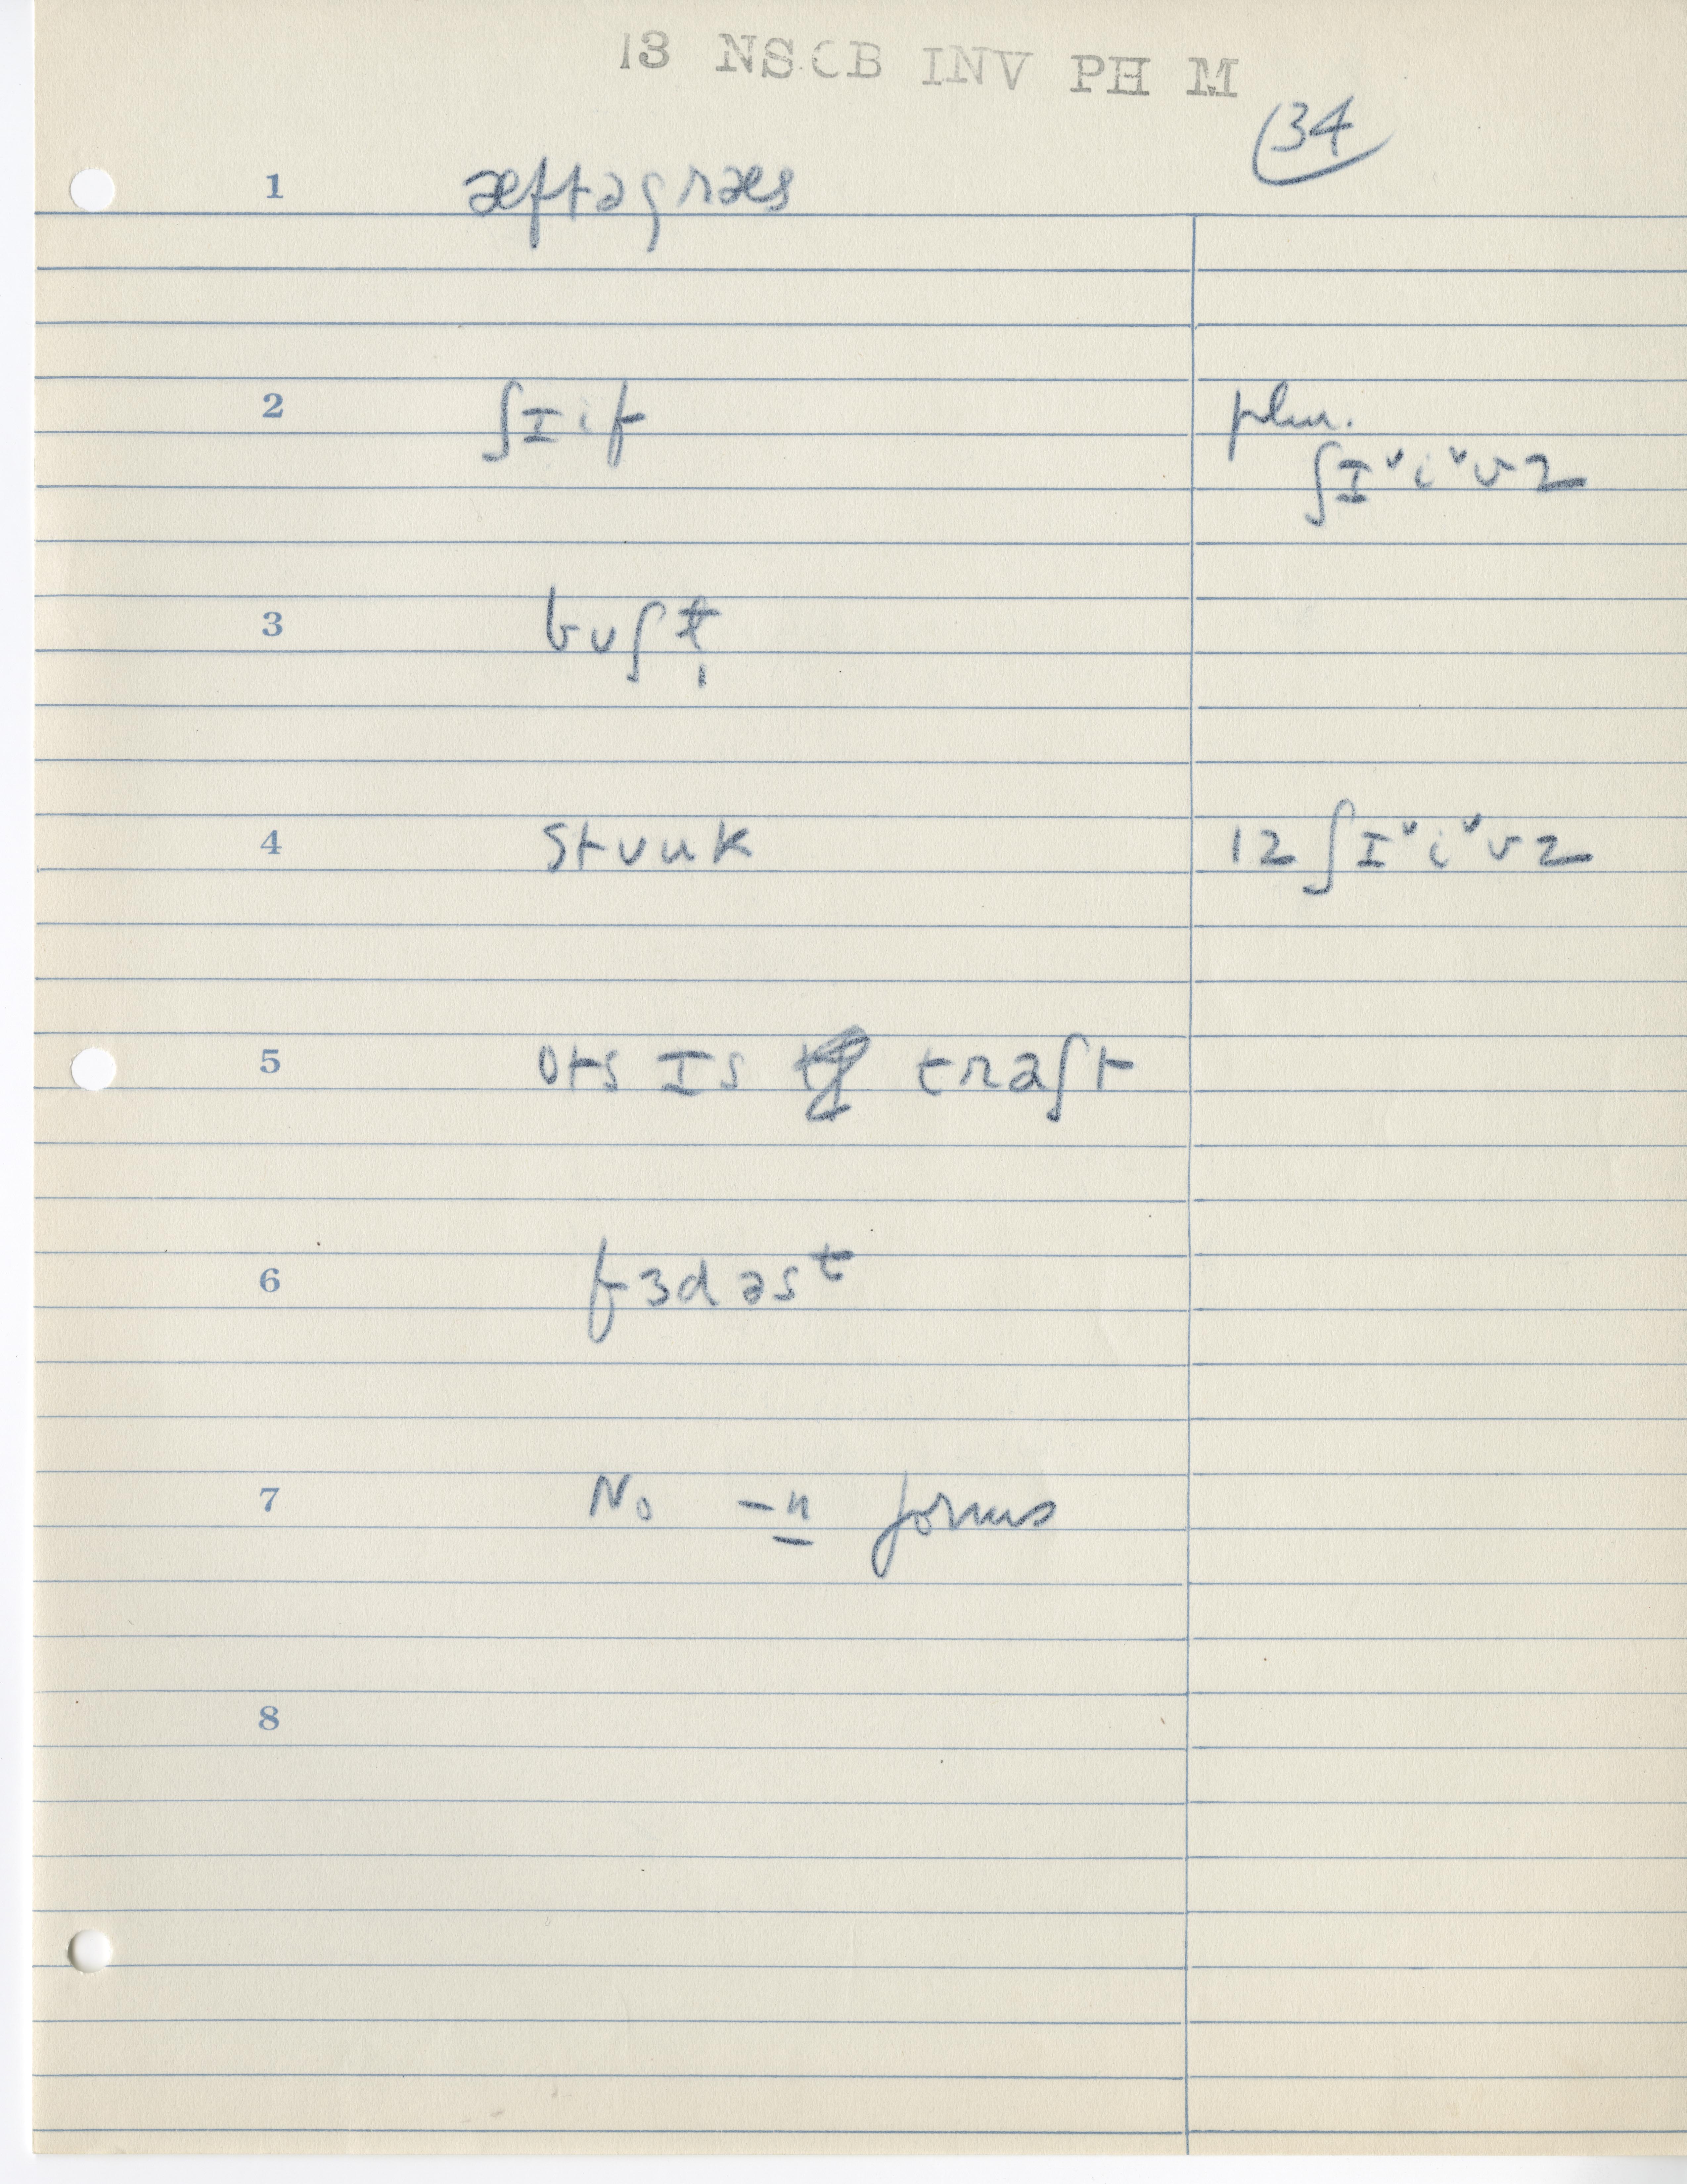 13 NSCB INV PH M
34
1 æftəgræs
2 ʃɪif plur.
ʃɪˇiˇvz
3 bʊʃt̩
4 stʊuk 12 ʃɪˇiˇvz
5 ots ɪs traʃt
6 fɜdəsᵗ
7 No -n forms
8